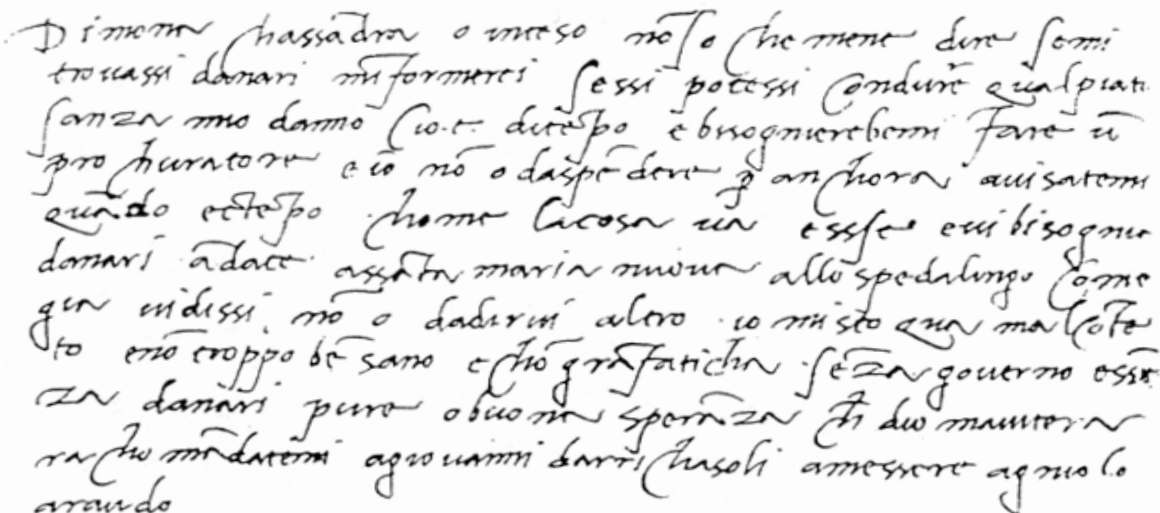 Di mona chassãdra o inteso nõ so che mene dire semi
trovassi danari m̃formerei sessi potessi condure qua lpiati
sanza mio danno cio.e. ditẽpo e bisognierebemi fare ũ
prochuratore e io nõ o daspẽdere p̱ anchora avisatemi
quãdo ectẽpo chome lacosa va esse evi bisognia
danari ãdate assãta maria nuova allo spedalingo come
gia vidissi nõ o dadirvi altro io misto qua mal cõtẽ
to enõ troppo bẽ sano e chõ grã faticha sẽza governo essẽ
za danari pure o buona sperãza ch̃ dio maiutera
rachomãdatemi agiovanni darrichasoli amessere agniolo
araudo